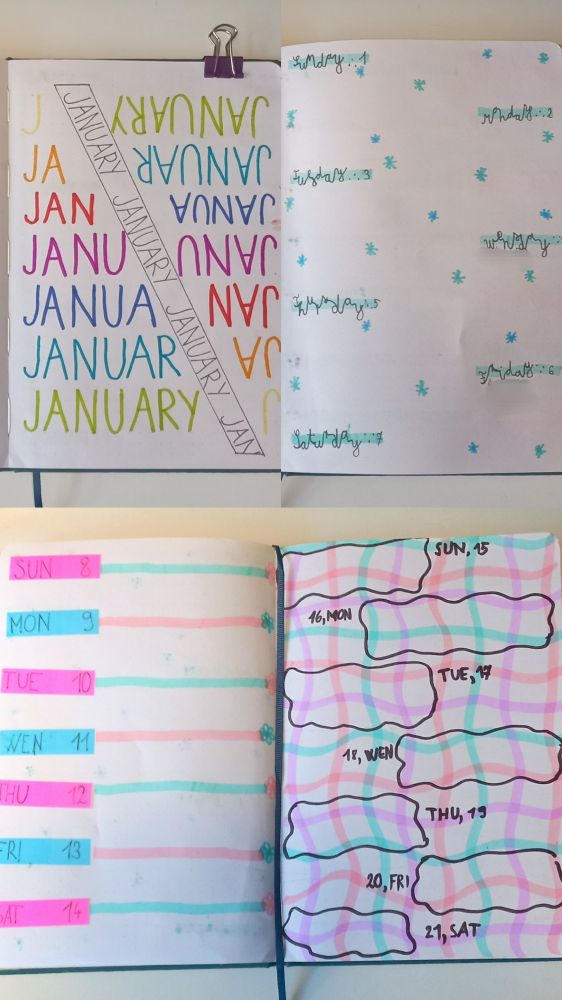 J
JA
JAN
JANU
JANUA
JANUAR
JANUARY
JANUARY JANUARY JANUARY JAN
JANUARY
JANUAR
JANUA
JANU
JAN
JA
J
Sunday..1
Monday..2
Tusday..3
Wensday..
Thursday..5
Friday..6
Saturday..7
SUN 8
MON 9
TUE 10
WEN 11
THU 12
FRI 13
SAT 14
SUN, 15
16, MON
TUE, 17
18, WEN
THU, 19
20, FRI
21, SAT